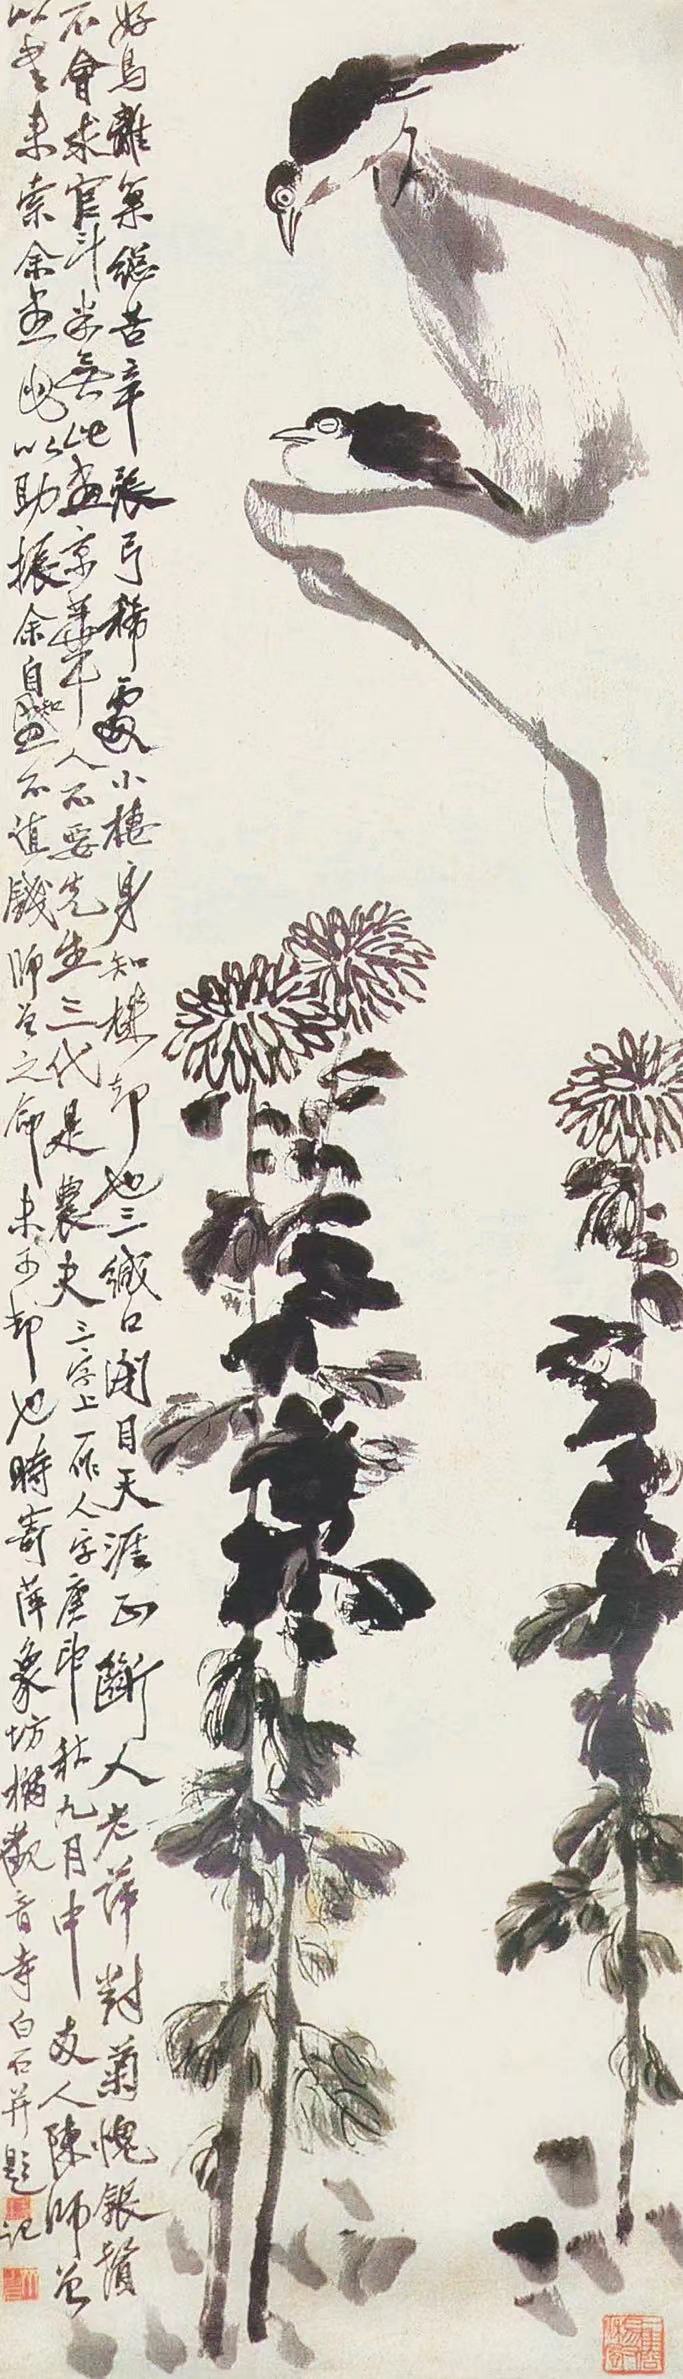 好鳥離巢總苦辛張弓稀處小棲身知機却也三緘口閉目天涯正斷人老萍對菊愧銀鬚
不會求官斗米無此畫京華人不要先生三代是農夫三字上一作人字庚申秋九月中友人陳師曾
以書來索余畫助振余自知畫不值錢師曾之命未可却也時寄萍象坊橋觀音寺白石并題記